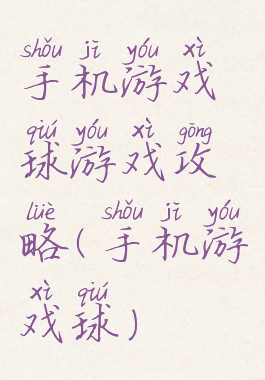 shǒu jī yóu xì
手机游戏
qiú yóu xì gōng
球游戏攻
lüè shǒu jī yóu
略(手机游
xì qiú
戏球)